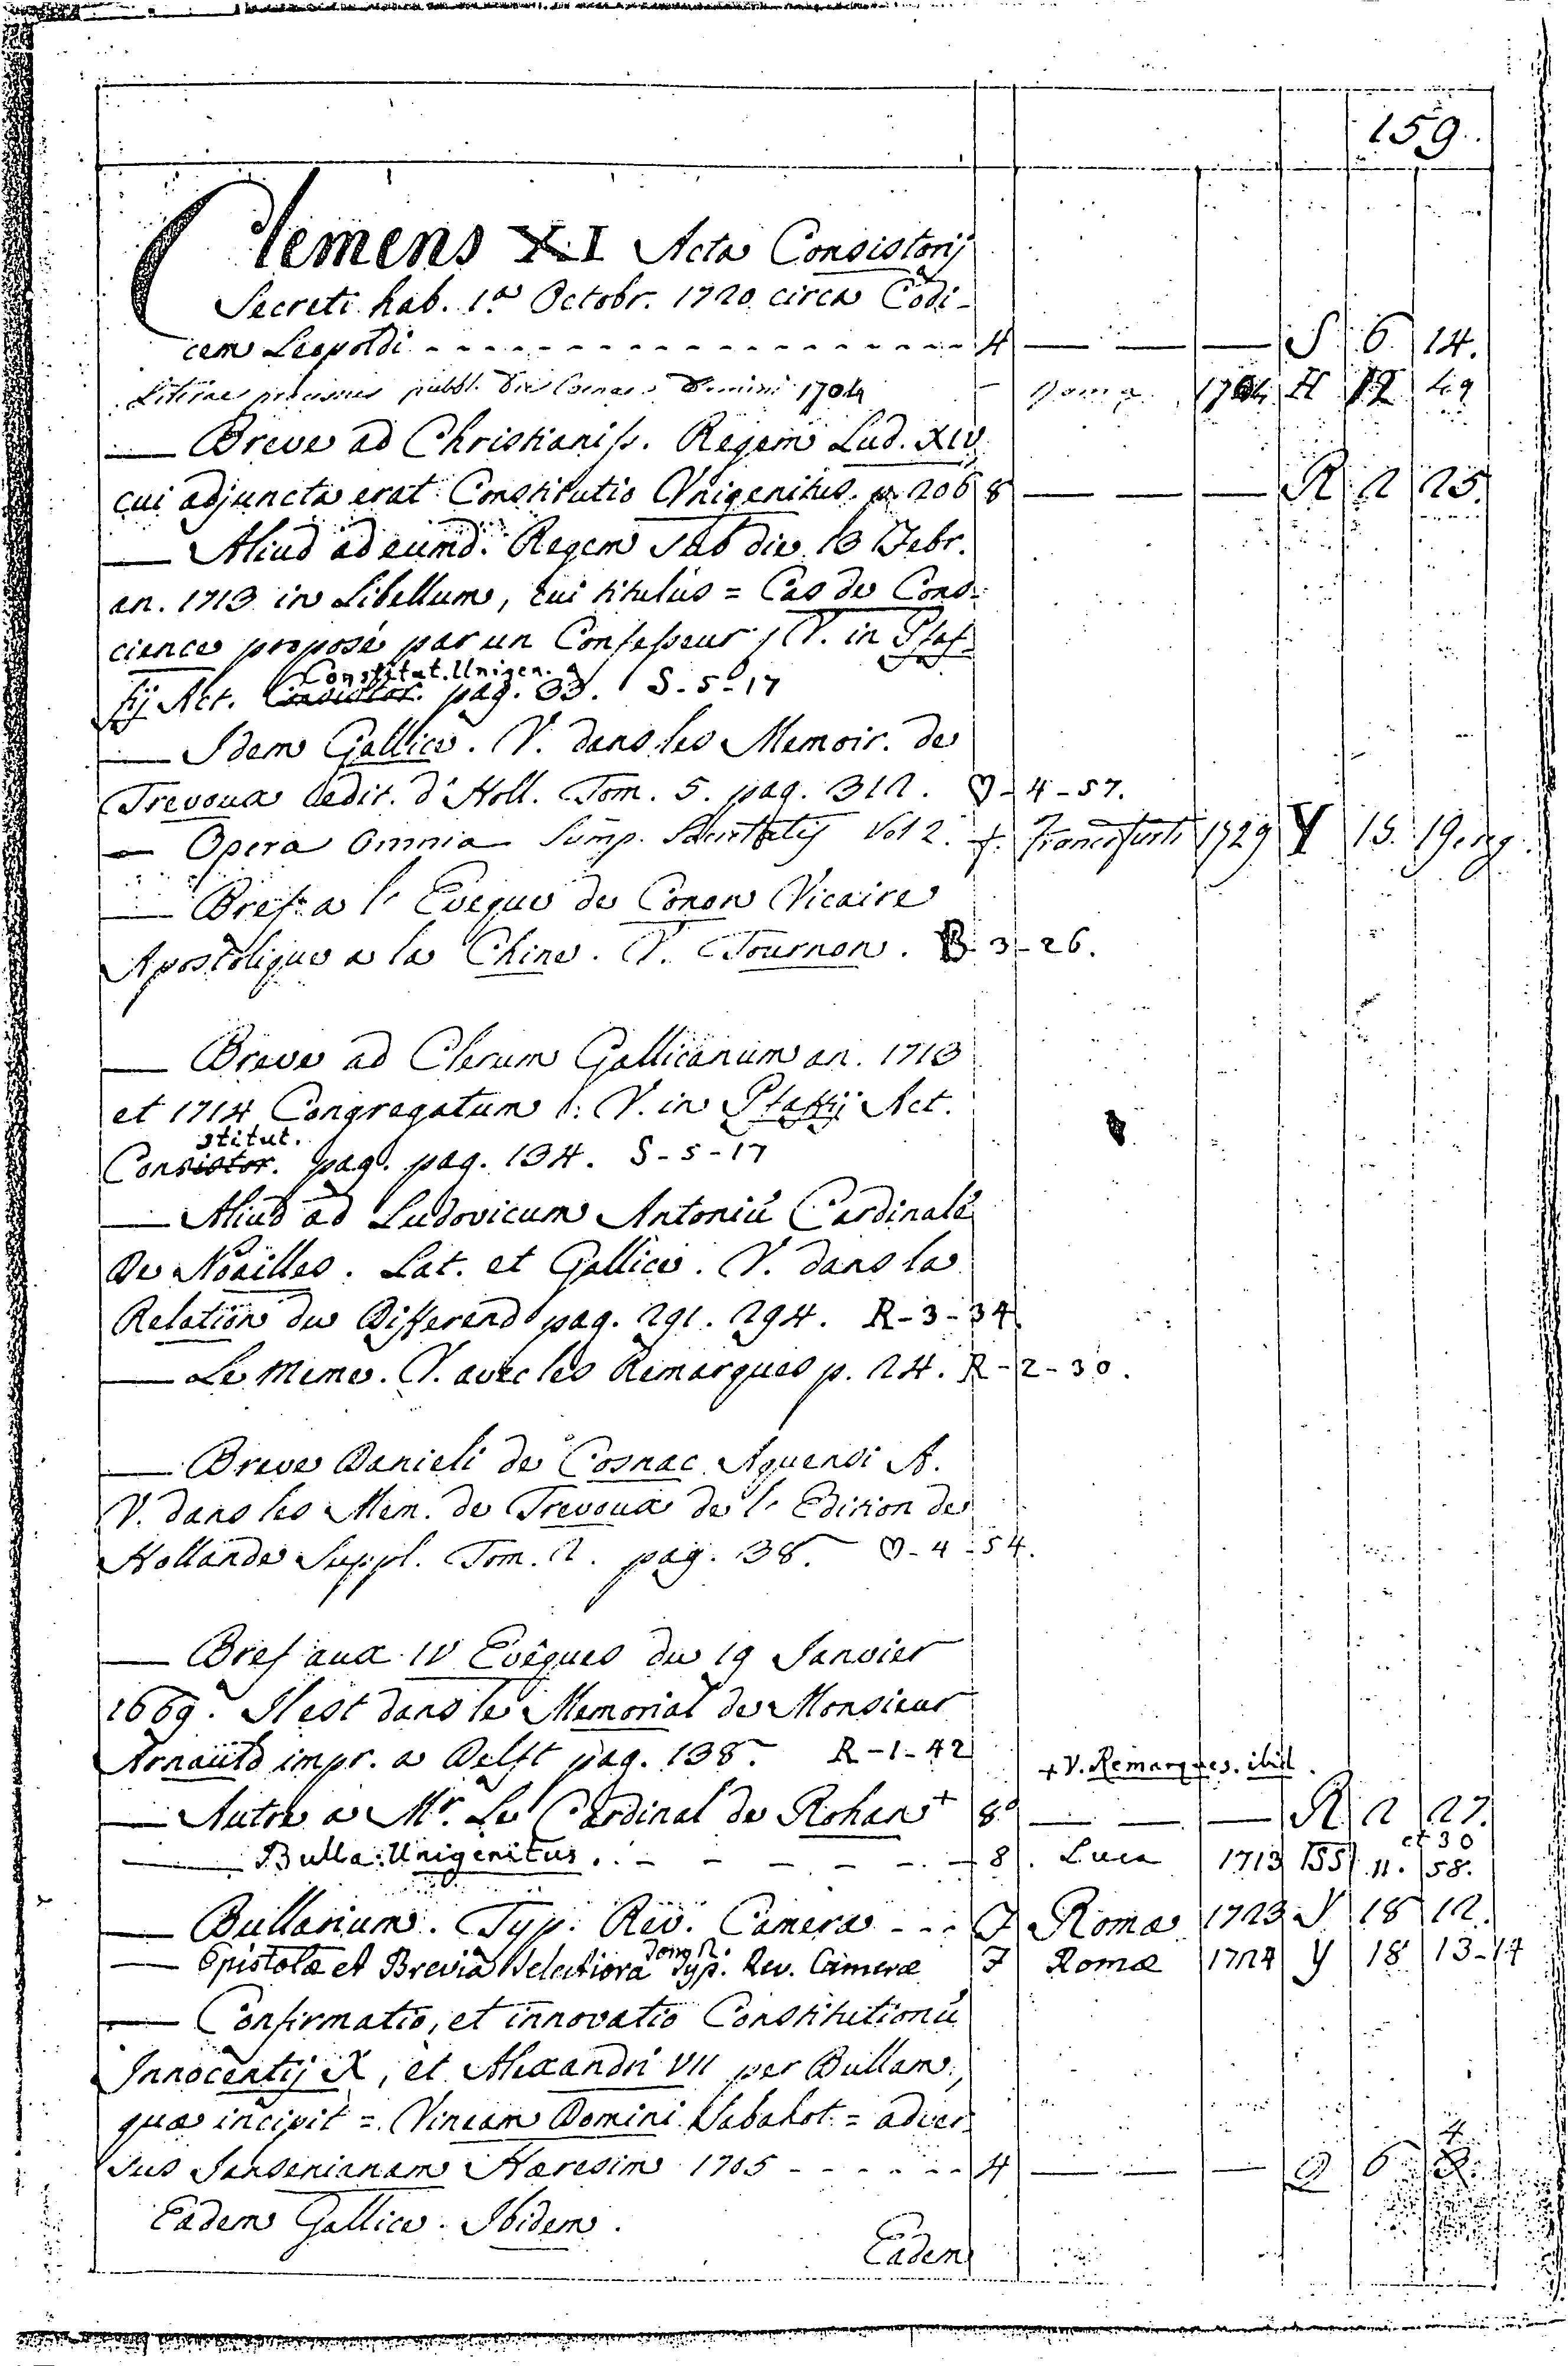 159.
Clemens XI Acta Consistorij
Secreti hab. 1.a Octobr. 1720 circa Codi-
cem Leopoldi - - - - - - - - - - 4 — — — S 6 14.
Literae pubbl. Die Domini 1704 — Roma 1704 H 49
— Breve ad Christianiss. Regem Lud. XIV
cui adjuncta erat Constitutio Unigenitus. p. 206 8 — — — R 2 25.
— Aliud ad eumd. Regem sub die 13 Febr.
an. 1713 in Libellum, cui titulus = Cas de Cons-
cience proposé par un Confesseur; V. in Pfaf-
Constitut. Unigen.
fij Act. Consistor. pag. 33. S-5-17
— Idem Gallice. V. dans les Memoir. de
Trevoux edit. d'Holl. Tom. 5. pag. 312. ♡-4-57.
— Opera Omnia Sump. Societatis Vol 2. f. Francofurti 1729 Y 15. 19 et 29.
— Bref a l'Eveque de Conon Vicaire
Apostolique a la Chine. V. Tournon. B-3-26.
— Breve ad Clerum Gallicanum an. 1713
et 1714 Congregatum. V. in Pfaffij Act.
stitut.
Consistor. pag. pag. 134. S-5-17
— Aliud ad Ludovicum Antoniū Cardinalē
De Noailles. Lat. et Gallice. V. dans la
Relation du Differend pag. 291. 294. R-3-34
— Le meme. V. avec les Remarques p. 24. R-2-30.
— Breve Danieli de Cosnac Aquensi A.
V. dans les Mem. de Trevoux de l'Edition de
Hollande Suppl. Tom. 2. pag. 38. ♡-4-54.
— Bref aux IV Evêques du 19 Janvier
1669. Il est dans le Memorial de Monsieur
Arnauld impr. a Delft pag. 138. R-1-42
+ V. Remarques. ibid.
— Autre a Mr. Le Cardinal de Rohan + 8o — — — R 2 27.
et 30
— Bulla: Unigenitus. - - - - - 8. Luca 1713 155 11. 58.
— Bullarium. Typ. Rev. Camera - - - F Roma 1723 Y 18 12.
Tom 2.
— Epistolæ et Brevia Selectiora Typ. Rev. Cameræ F Romæ 1724 Y 18 13-14
— Confirmatio, et innovatio Constitutionū
Innocentij X, et Alexandri VII per Bullam,
quæ incipit = Vineam Domini Sabahot = adver
4
sus Jansenianam Hæresim 1705 - - - - - - 4 — — — Q 6 2.
Eadem Gallice. Ibidem.
Eadem